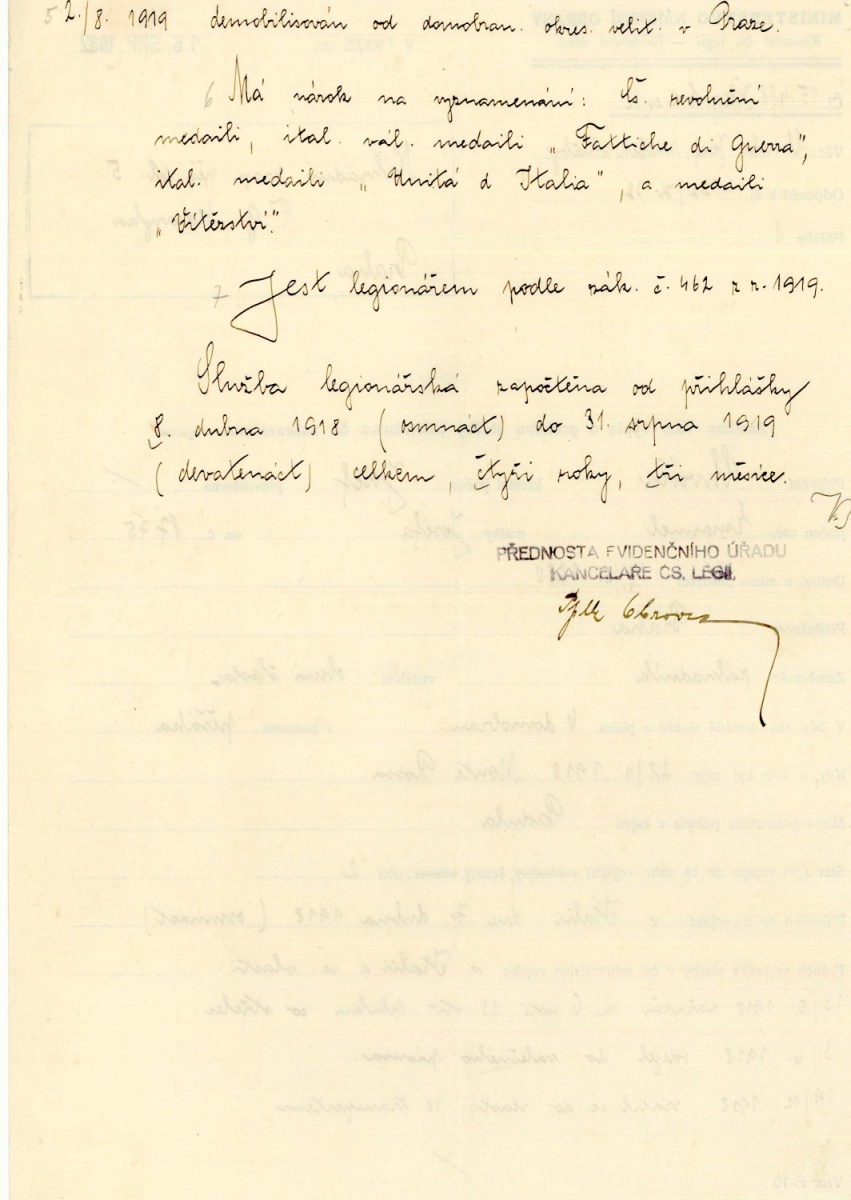 5 2./8. 1919 demobilisován od domobran. okres. velit. v Praze.
6 Má nárok na vyznamenání: Čs. revoluční
medaili, ital. vál. medaili „Fattiche di Guerra",
ital. medaili „Unitá d Italia", a medaili
„Vítězství."
7 Jest legionářem podle zák. č. 462 z r. 1919.
Služba legionářská započtěna od přihlášky
8. dubna 1918 (osmnáct) do 31. srpna 1919
(devatenáct) celkem, čtyři roky, tři měsíce.
PŘEDNOSTA EVIDENČNÍHO ÚŘADU
KANCELÁŘE ČS. LEGIÍ.